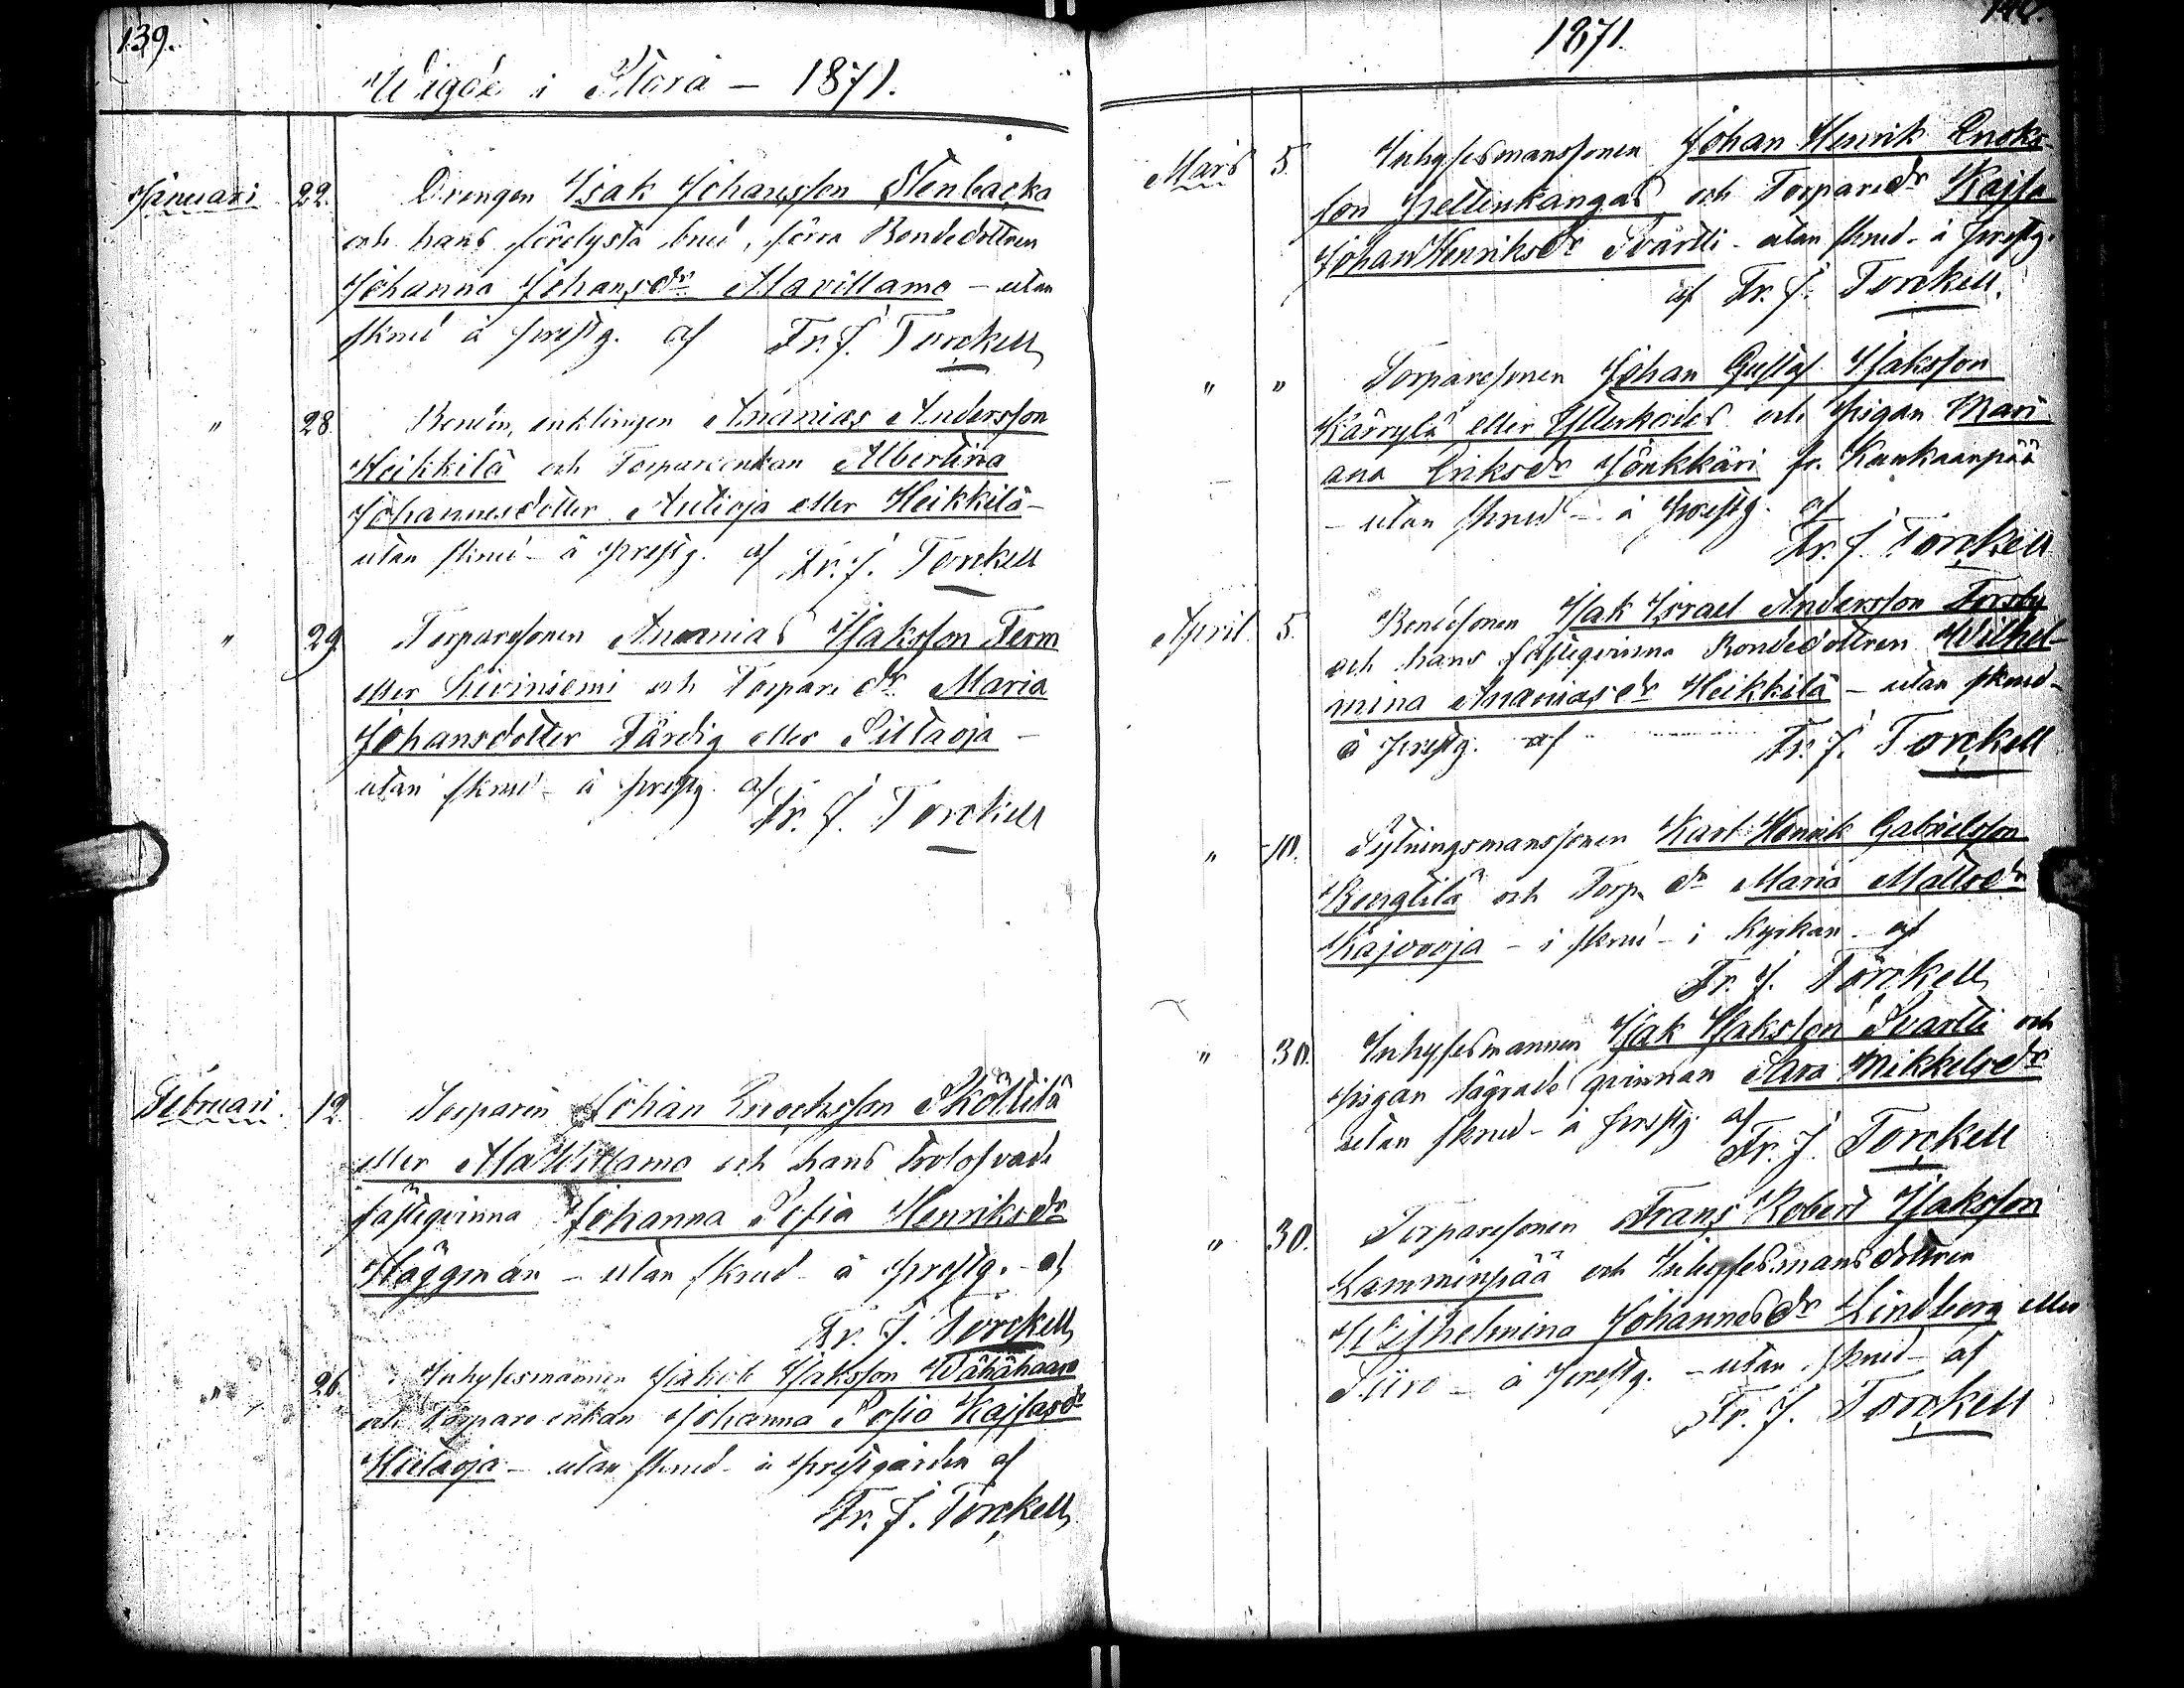 139.
Wigde i Storå – 1871.
Januari 22. Drengen Isak Johansson Stenbacka
och hans förelysta brud, förra Bondedottren
Johanna Johansdr Alavillamo – utan
skrud å prestg. af Fr. J. Torckell
" 28. Bonden, enklingen Ananias Andersson
Heikkilä och Torpareenkan Albertina
Johannesdotter Autioja eller Heikkilä –
utan skrud – å prestg. af Fr. J. Torckell
" 29. Torparesonen Ananias Isaksson Ferm
eller Kiviniemi och Torparedr Maria
Johansdotter Färdig eller Siltaoja –
utan skrud – å prestg. af
Fr. J. Torckell
Februari. 12. Torparen Johan Enochsson Sköttilä
eller Ala Willamo och hans trolofvade
fästeqvinna Johanna Sofia Henriksdr
Häggman – utan skrud – å prestg. – af
Fr. J. Torckell
" 26. Inhysesmannen Jakob Isaksson Wähähaara
och Torpareenkan Johanna Sofia Kajsasdr
Hietaoja – utan skrud – å prestgården af
Fr. J. Torckell
1871.
140.
Mars 5. Inhysesmanssonen Johan Henrik Enoks-
son Hellinkangas och Torparedr Kajsa
Johan Henriksdr Svartti – utan skrud – å prestg.
af Fr. J. Torckell.
" " Torparesonen Johan Gustaf Isaksson
Kärrylä eller Ylleskoski och pigan Mari
ana Eriksdr Hönkkäri fr. Kankaanpää
– utan skrud – å prestg. af
Fr. J. Torckell
April. 5. Bondesonen Isak Israel Andersson Forsby
och hans fästeqvinna Bondedottren Wilhel-
mina Ananiasdr Heikkilä – utan skrud –
å prestg. af Fr. J. Torckell
" 10. Sytningsmanssonen Karl Henrik Gabrielsson
Bengtilä och Torp. dr Maria Mattsdr
Kajvooja – i skrud – i kyrkan – af
Fr. J. Torckell
" 30. Inhysesmannen Isak Isaksson Svartti och
pigan lägrade qvinnan Sara Mikkelsdr
utan skrud – å prestg. af
Fr. J. Torckell
" 30. Torparesonen Frans Robert Isaksson
Lamminpää och Inhysesmansdottren
Wilhelmina Johannesdr Lindberg eller
Siiro – å prestg. – utan skrud – af
Fr. J. Torckell